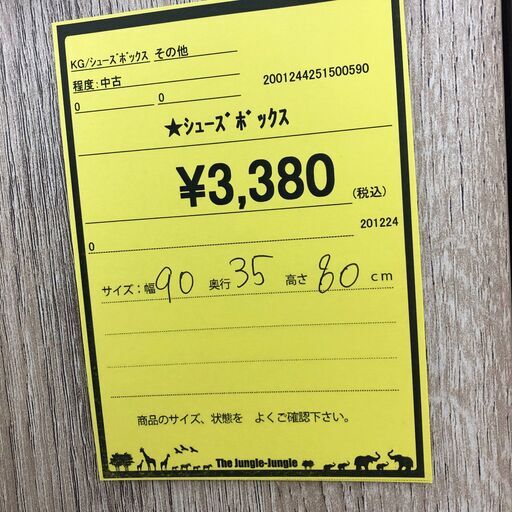 KG/ｼｭｰｽﾞﾎﾞｯｸｽ その他
程度:中古
2001244251500590
0 0
★ｼｭｰｽﾞﾎﾞｯｸｽ
¥3,380 (税込)
0 201224
サイズ:幅 90 奥行 35 高さ 80 cm
商品のサイズ、状態を よくご確認下さい。
The Jungle-Jungle